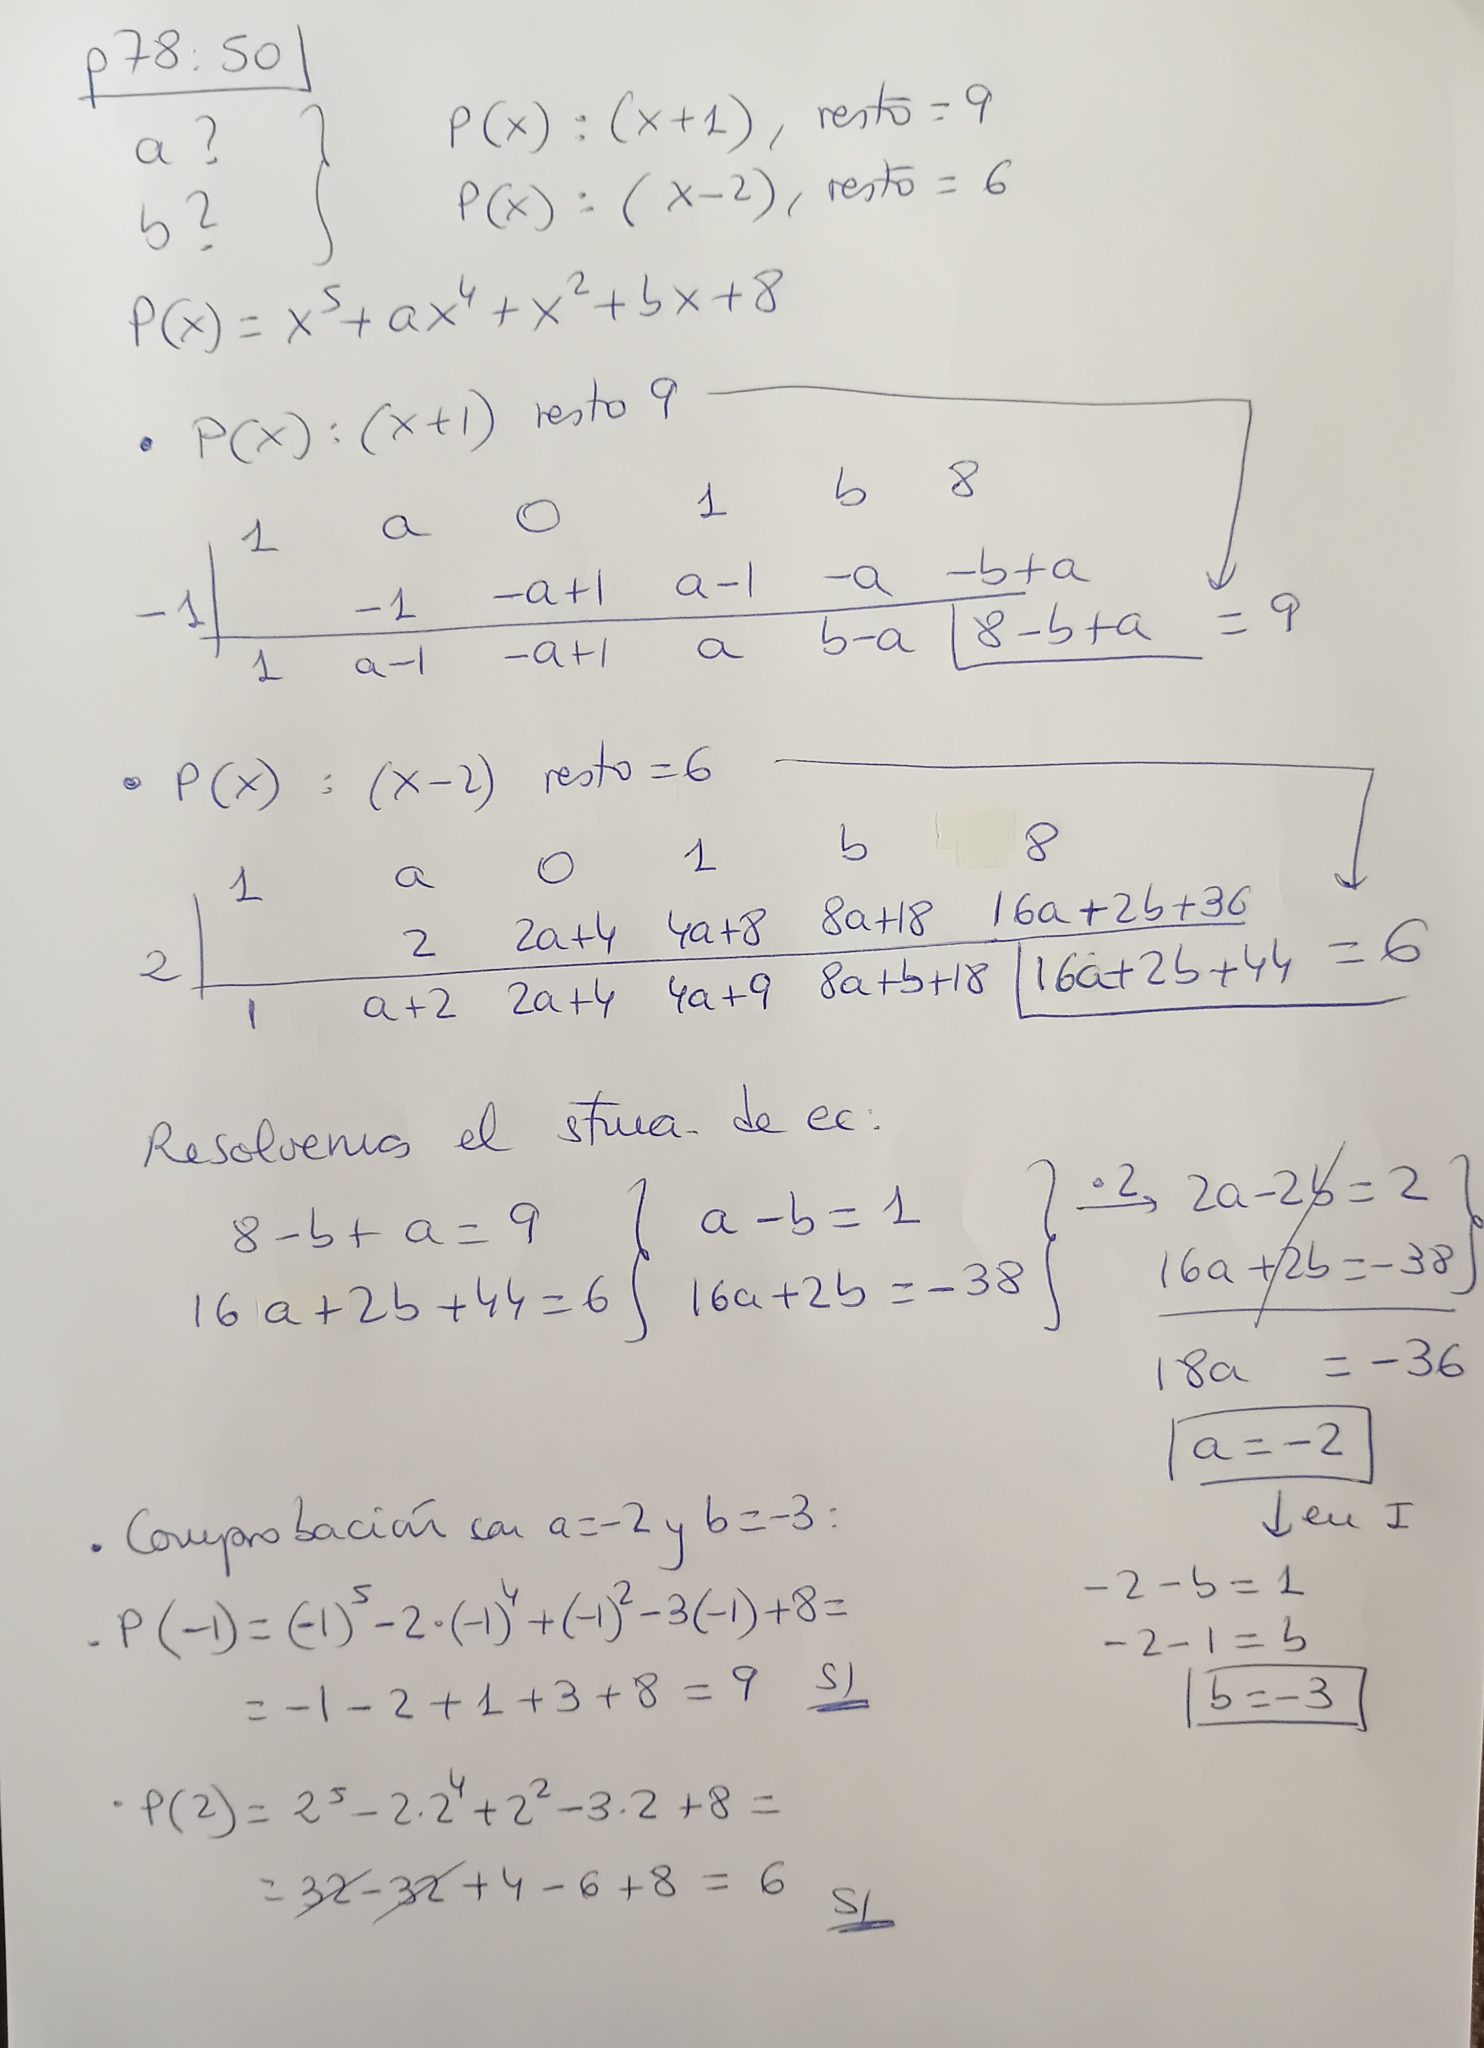 p78:50
a?
b?
P(x) : (x+1), resto = 9
P(x) : (x-2), resto = 6
P(x) = x⁵+ax⁴+x²+bx+8
• P(x) : (x+1) resto 9
1 a 0 1 b 8
-1 -1 -a+1 a-1 -a -b+a
1 a-1 -a+1 a b-a 8-b+a = 9
• P(x) : (x-2) resto = 6
1 a 0 1 b 8
2 2 2a+4 4a+8 8a+18 16a+2b+36
1 a+2 2a+4 4a+9 8a+b+18 16a+2b+44 = 6
Resolvemos el stma. de ec:
8-b+a=9 } a-b=1 } ·2→ 2a-2b=2 }
16a+2b+44=6 } 16a+2b=-38 } 16a+2b=-38 }
18a = -36
a=-2
↓ en I
-2-b=1
-2-1=b
b=-3
• Comprobación con a=-2 y b=-3:
- P(-1) = (-1)⁵-2·(-1)⁴+(-1)²-3(-1)+8=
= -1-2+1+3+8 = 9 SI
· P(2) = 2⁵-2·2⁴+2²-3·2+8 =
= 32-32+4-6+8 = 6 SI